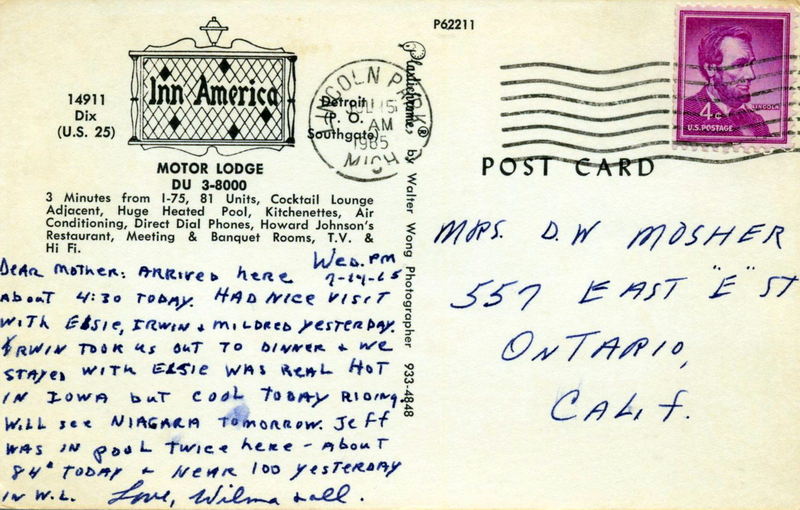 P62211
Inn America
14911
Dix
(U.S. 25)
Detroit
(P. O.
Southgate)
MOTOR LODGE
DU 3-8000
3 Minutes from I-75, 81 Units, Cocktail Lounge
Adjacent, Huge Heated Pool, Kitchenettes, Air
Conditioning, Direct Dial Phones, Howard Johnson's
Restaurant, Meeting & Banquet Rooms, T.V. &
Hi Fi.
LINCOLN PARK
JUL 15
AM
1965
MICH
Plastichrome® by Walter Wong Photographer 933-4848
4¢
LINCOLN
U.S. POSTAGE
POST CARD
Wed. PM
7-14-65
Dear Mother: Arrived here
about 4:30 today. Had nice visit
with Elsie, Irwin & Mildred yesterday.
Irwin took us out to dinner & we
stayed with Elsie was real hot
in Iowa but cool today riding.
Will see Niagara tomorrow. Jeff
was in pool twice here - about
84° today & near 100 yesterday
in W.L. Love, Wilma & all.
Mrs. D.W Mosher
557 East "E" St
Ontario,
Calif.